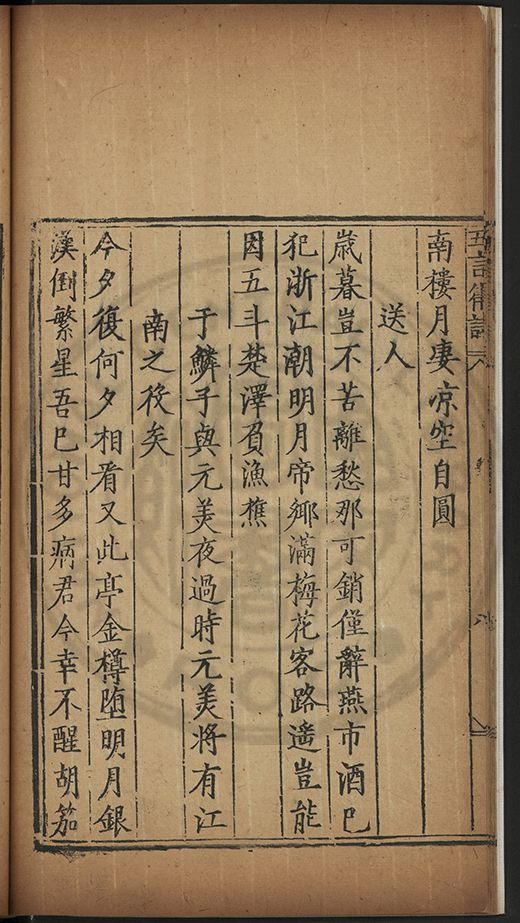 五言律詩
南樓月凄凉空自圓
送人
歲暮豈不苦離愁那可銷僅辭燕市酒已
犯浙江潮明月帝鄉滿梅花客路遙豈能
因五斗楚澤負漁樵
于鱗子與元美夜過時元美將有江
南之役矣
今夕復何夕相看又此亭金樽墮明月銀
漢倒繁星吾已甘多病君今幸不醒胡笳